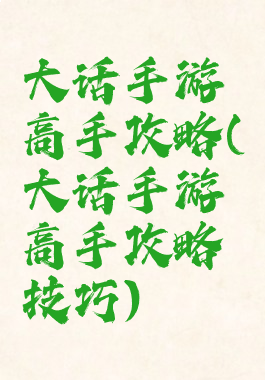 大话手游
高手攻略(
大话手游
高手攻略
技巧)